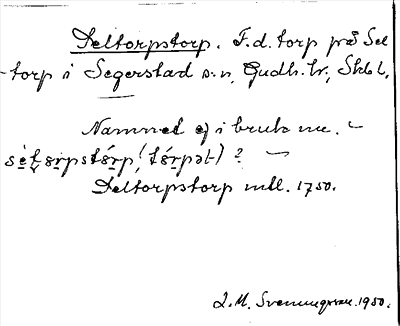 Seltorpstorp. F.d. torp på Sel-
torp i Segerstad s:n, Gudh. hr, Skbl.
Namnet ej i bruk nu. –
Seltorpstorp mtl. 1750.
L.M. Svenungsson. 1950.